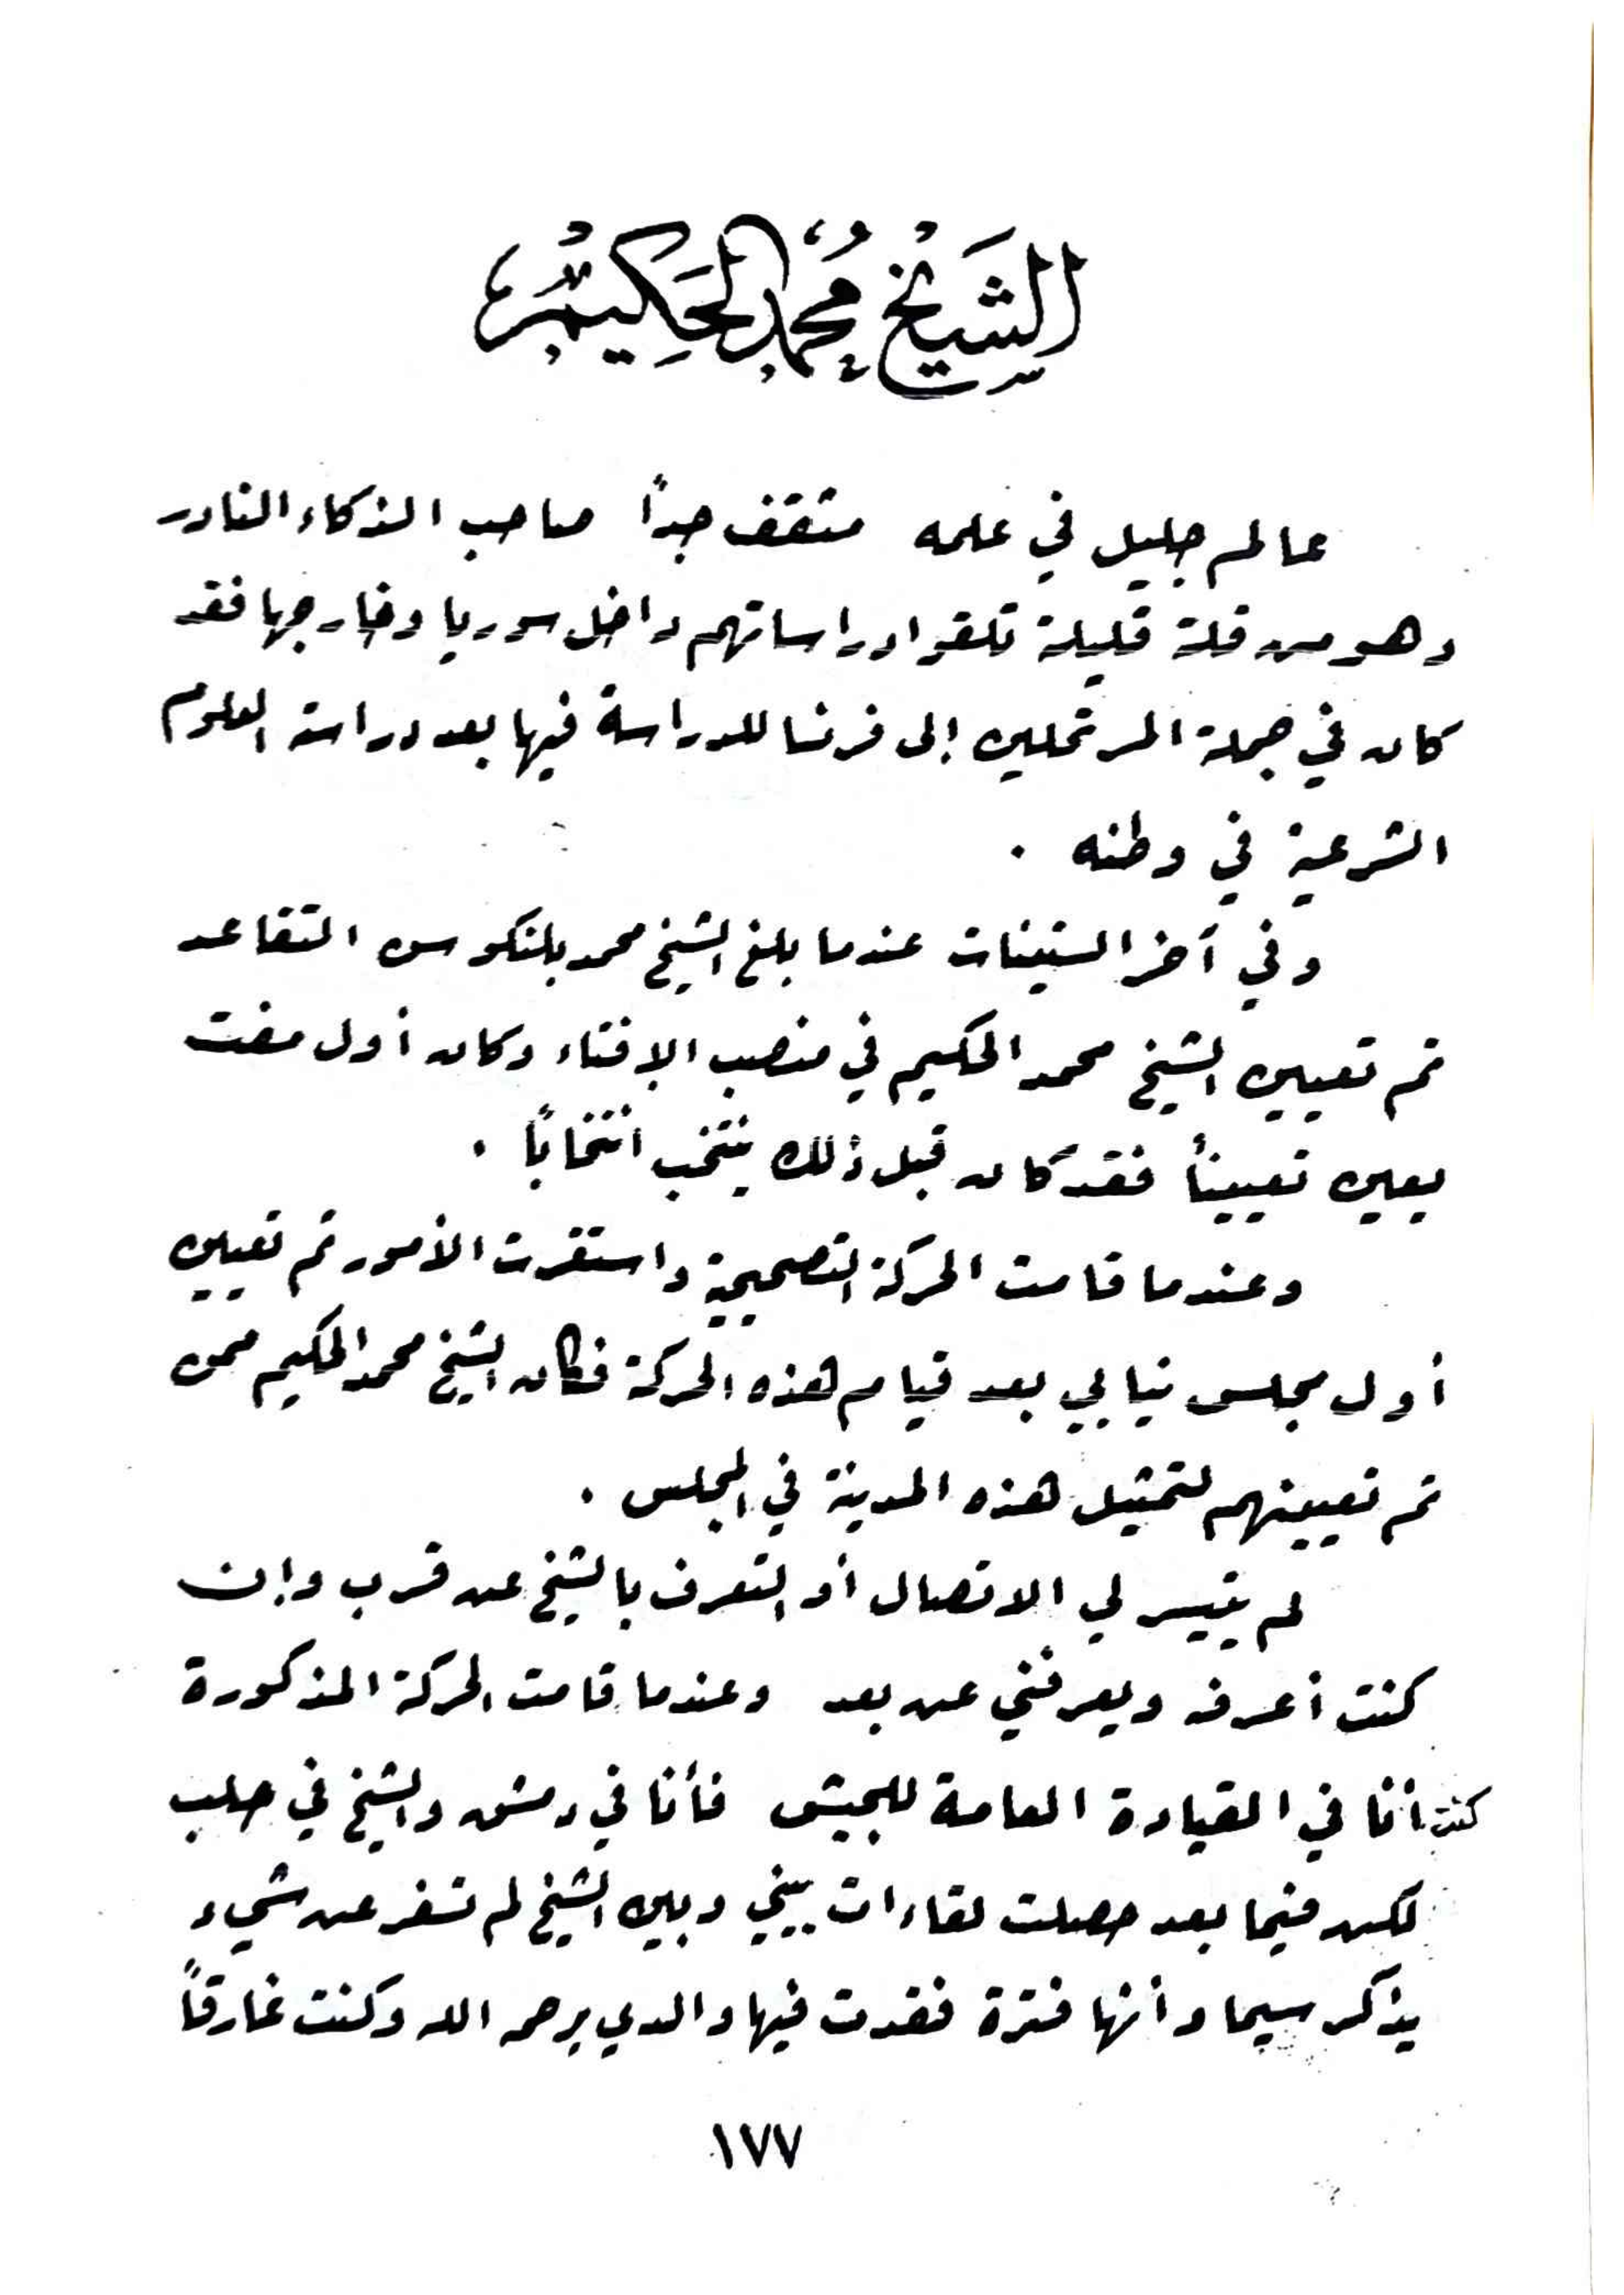 الشَيْخ مُحمد الحَكِيم
عالم جليل في علمه مثقف جداً صاحب الذكاء النادر
وهو من قلة قليلة تلقوا دراساتهم داخل سوريا وخارجها فقد
كان في جملة المرتحلين إلى فرنسا للدراسة فيها بعد دراسة العلوم
الشرعية في وطنه .
وفي آخر الستينات عندما بلغ الشيخ محمد بلنكو سن التقاعد
تم تعيين الشيخ محمد الحكيم في منصب الإفتاء وكان أول مفت
يعين تعييناً فقد كان قبل ذلك ينتخب انتخاباً .
وعندما قامت الحركة التصحيحية واستقرت الأمور تم تعيين
أول مجلس نيابي بعد قيام هذه الحركة فكان الشيخ محمد الحكيم ممن
تم تعيينهم لتمثيل هذه المدينة في المجلس .
لم يتيسر لي الاتصال أو التعرف بالشيخ عن قرب وإن
كنت أعرفه ويعرفني عن بعد وعندما قامت الحركة المذكورة
كنت أنا في القيادة العامة للجيش فأنا في دمشق والشيخ في حلب
لكن فيما بعد حصلت لقاءات بيني وبين الشيخ لم تسفر عن شيء
يذكر سيما وأنها فترة فقدت فيها والدي يرحمه الله وكنت غارقاً
١٧٧